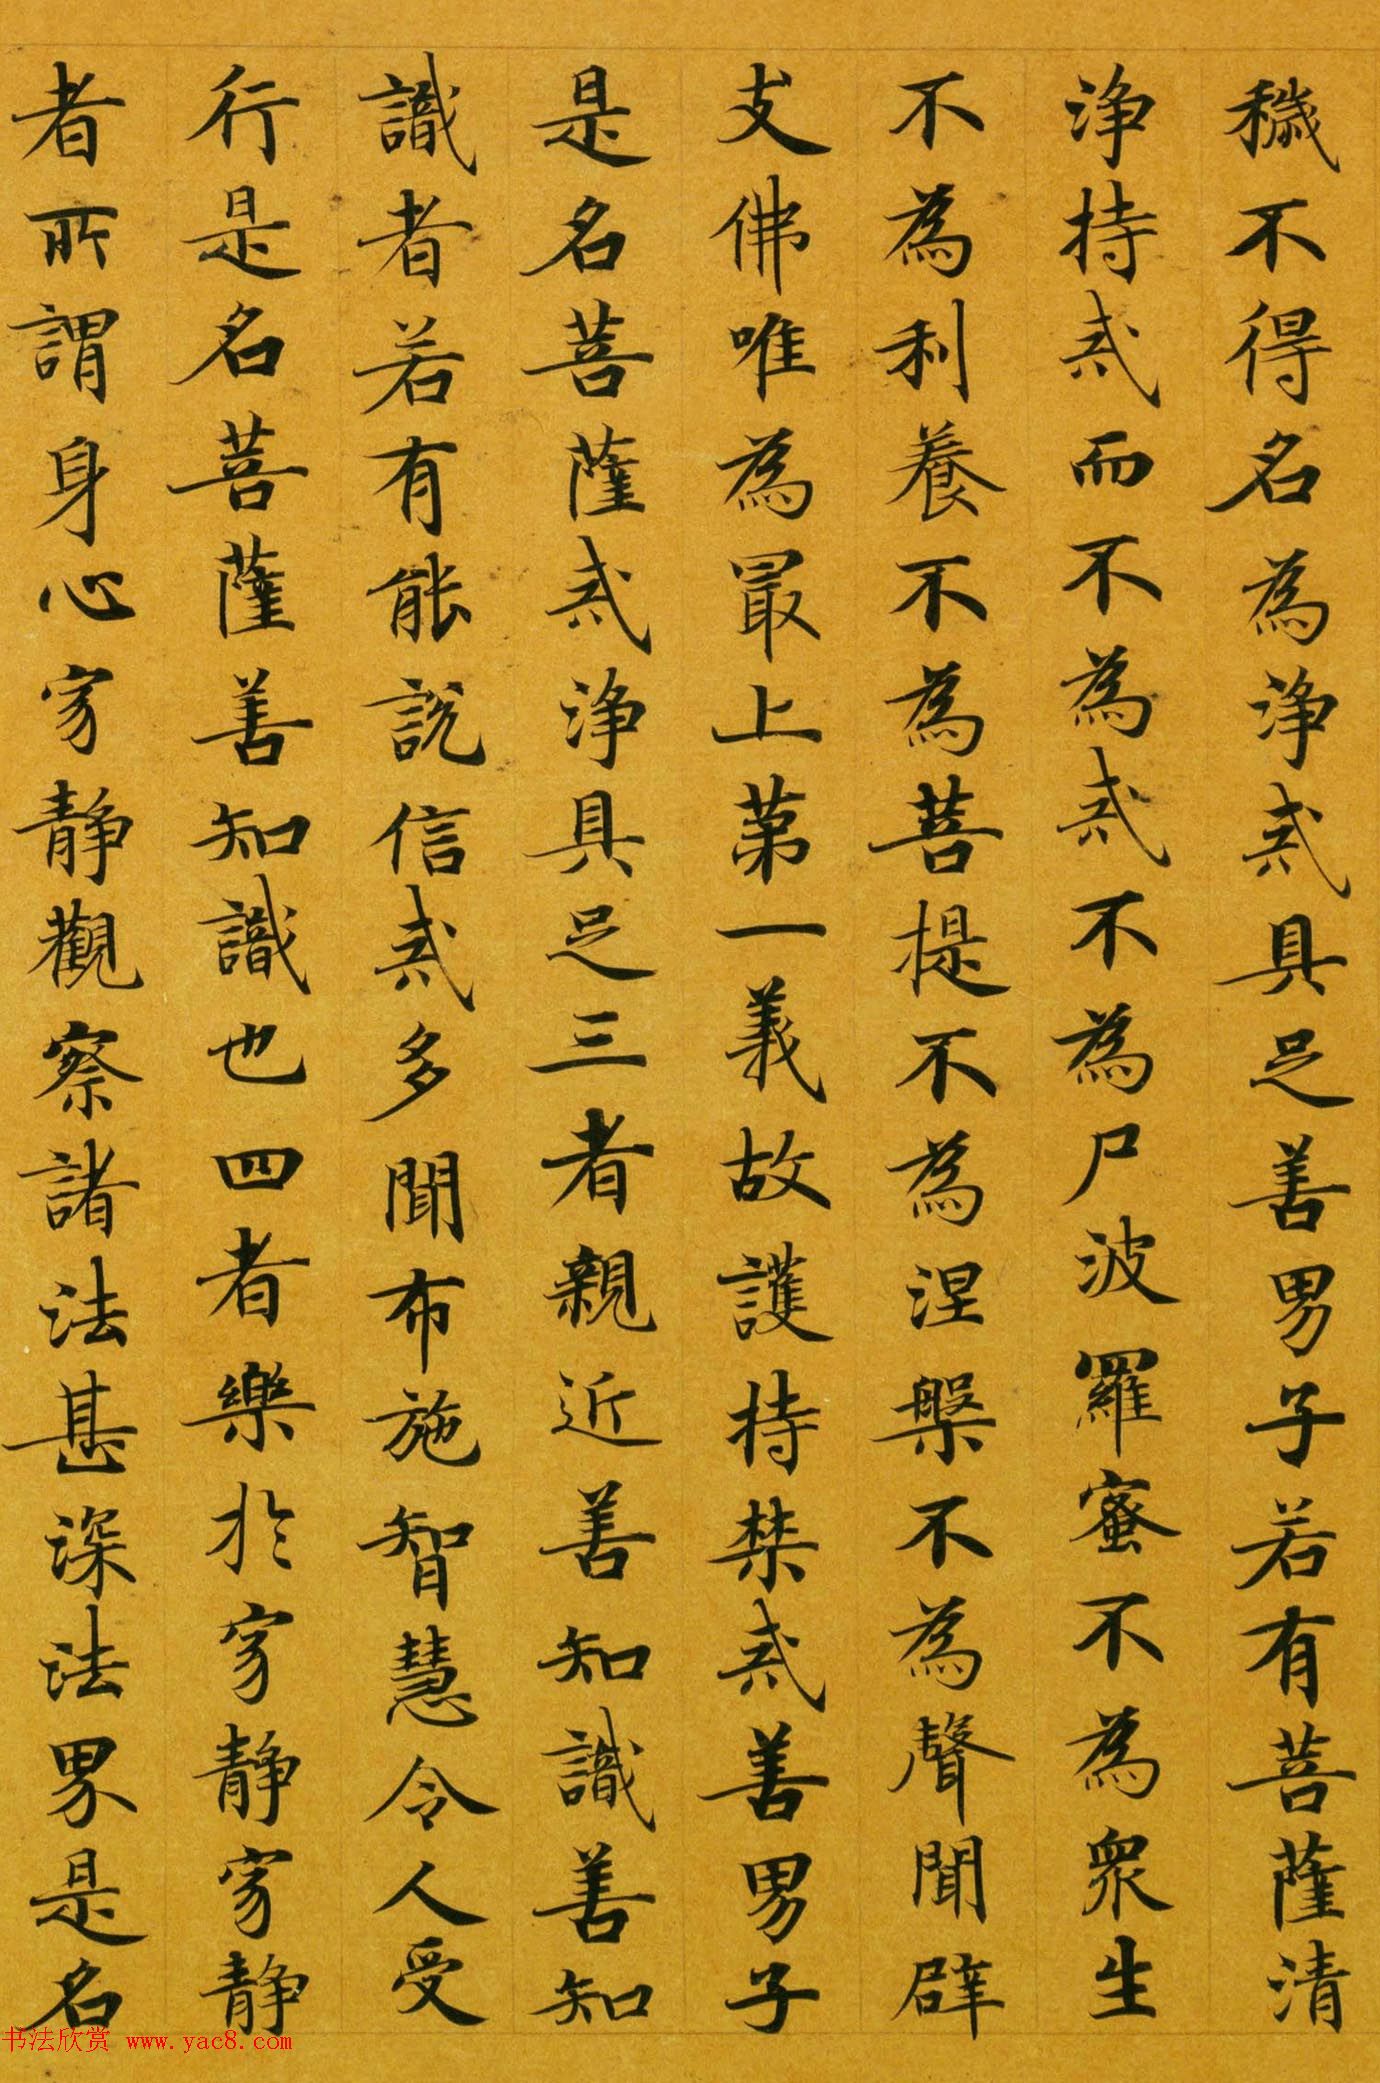 穢不得名為淨戒具足善男子若有菩薩清
淨持戒而不為戒不為尸波羅蜜不為眾生
不為利養不為菩提不為涅槃不為聲聞辟
支佛唯為最上第一義故護持禁戒善男子
是名菩薩戒淨具足三者親近善知識善知
識者若有能說信戒多聞布施智慧令人受
行是名菩薩善知識也四者樂於寂靜寂靜
者所謂身心寂靜觀察諸法甚深法界是名
书法欣赏 www.yac8.com